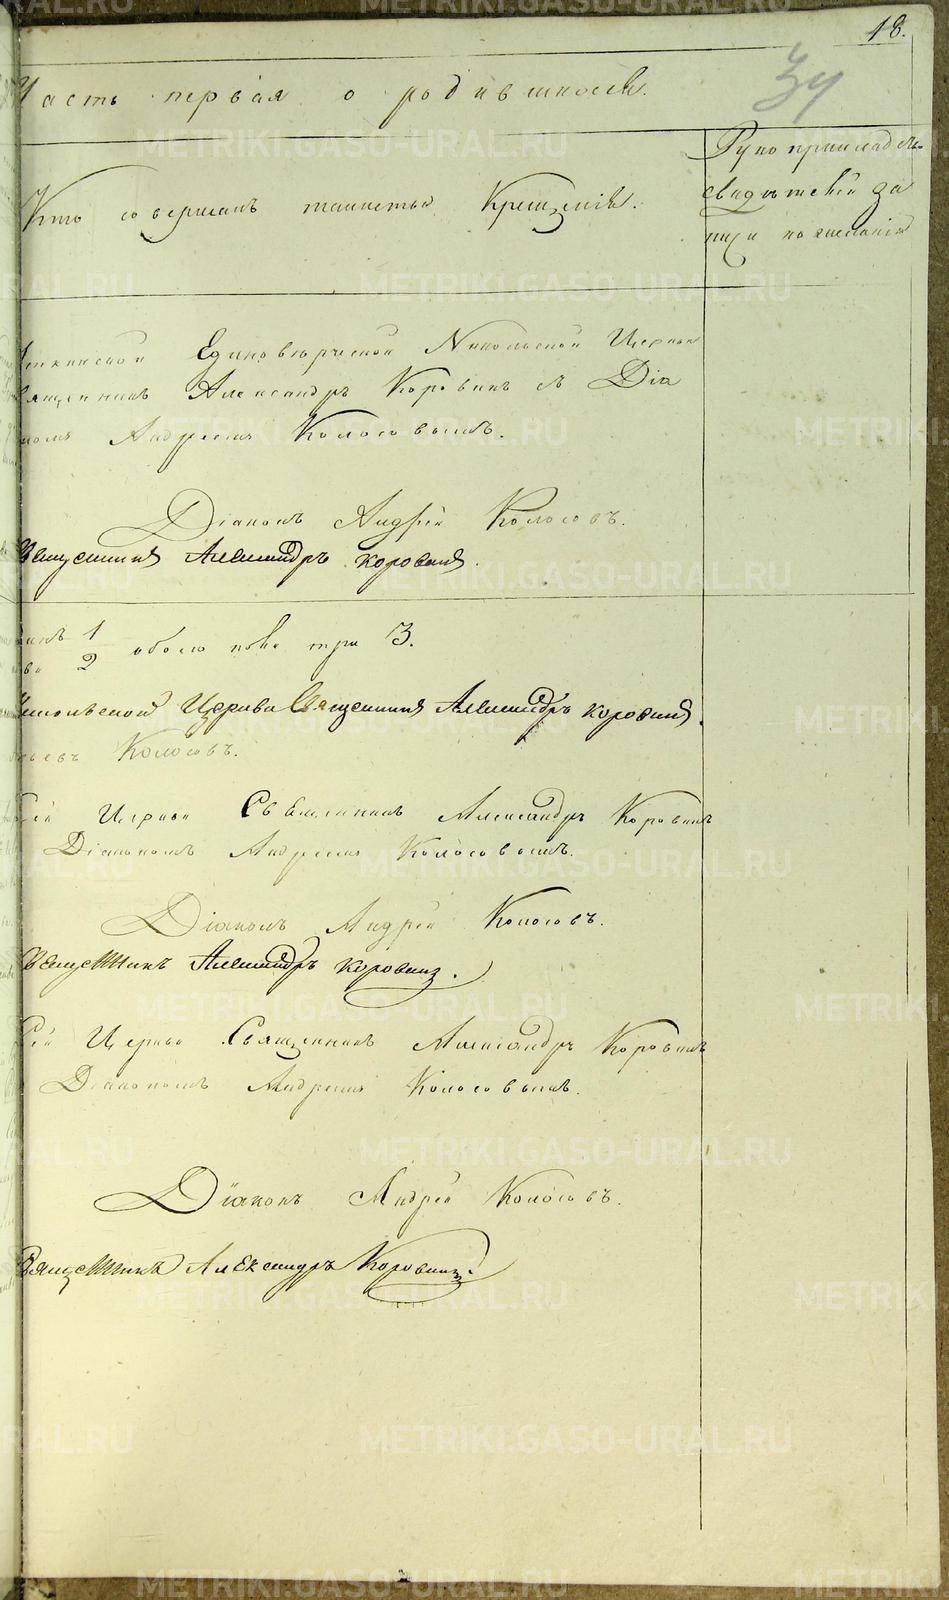 18.
34
Часть первая о родившихся.
Кто совершалъ таинство Крещенія.
Рукоприкладст.
свидѣтелей за
писи по желанію
Единовѣрческой Никольской Церкви
Священникъ Александръ Коровинъ съ Діа
кономъ Андреемъ Колосовымъ.
Діаконъ Андрей Колосовъ.
Священникъ Александръ Коровинъ.
1
2 обоего пола три 3.
Никольской Церкви Священникъ Александръ Коровинъ.
Колосовъ.
Церкви Священникъ Александръ Коровинъ
Діакономъ Андреемъ Колосовымъ.
Діаконъ Андрей Колосовъ.
Священникъ Александръ Коровинъ.
Церкви Священникъ Александръ Коровинъ
Діакономъ Андреемъ Колосовымъ.
Діаконъ Андрей Колосовъ.
Священникъ Александръ Коровинъ.
METRIKI.GASO-URAL.RU